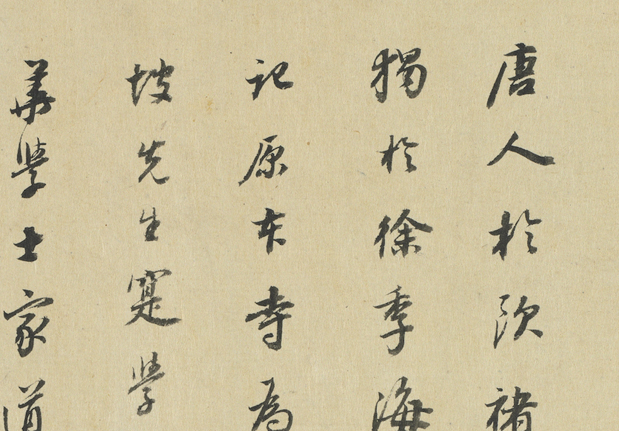 唐人於欧褚
獨於徐季海
記原本寺為
坡先生寔學
華學士家道